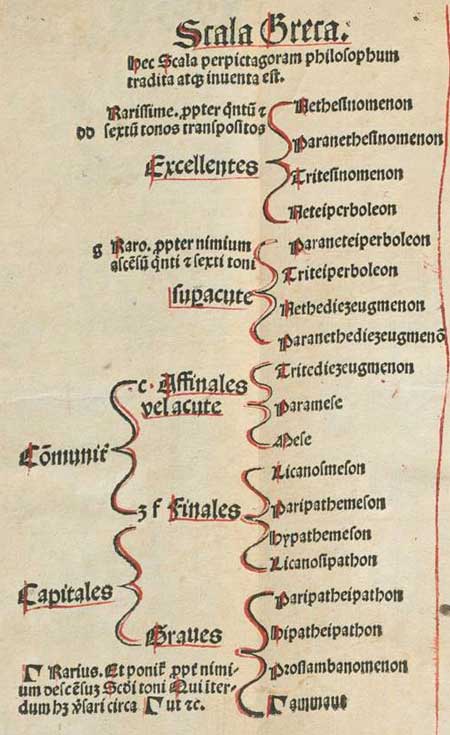 Scala Greca.
hec Scala perpictagoram philosophum
tradita atqꝫ inventa est.
Rarissime. ꝓpter q̄ntū ⁊
dd sextū tonos transpositos
Excellentes
Nethesinomenon
Paranethesinomenon
Tritesinomenon
Neteiperboleon
g Raro. ꝓpter nimium
ascēsū q̄nti ⁊ sexti toni
suꝑacute
Paraneteiperboleon
Triteiperboleon
Nethediezeugmenon
Paranethediezeugmenō
c. Affinales
vel acute
Tritediezeugmenon
Paramese
Mese
Cōmunit᷑
ꝫ f Finales
Licanosmeson
Paripathemeson
hypathemeson
Licanosipathon
Capitales
Graves
Paripatheipathon
hipatheipathon
Proslambanomenon
Gammaut
Γ Rarius. Et ponit᷑ ꝓpt̄ nimi-
um descēsuꝫ Scd̄i toni Qui īter-
dum hꝫ v̄sari circa Γ ut ⁊c.